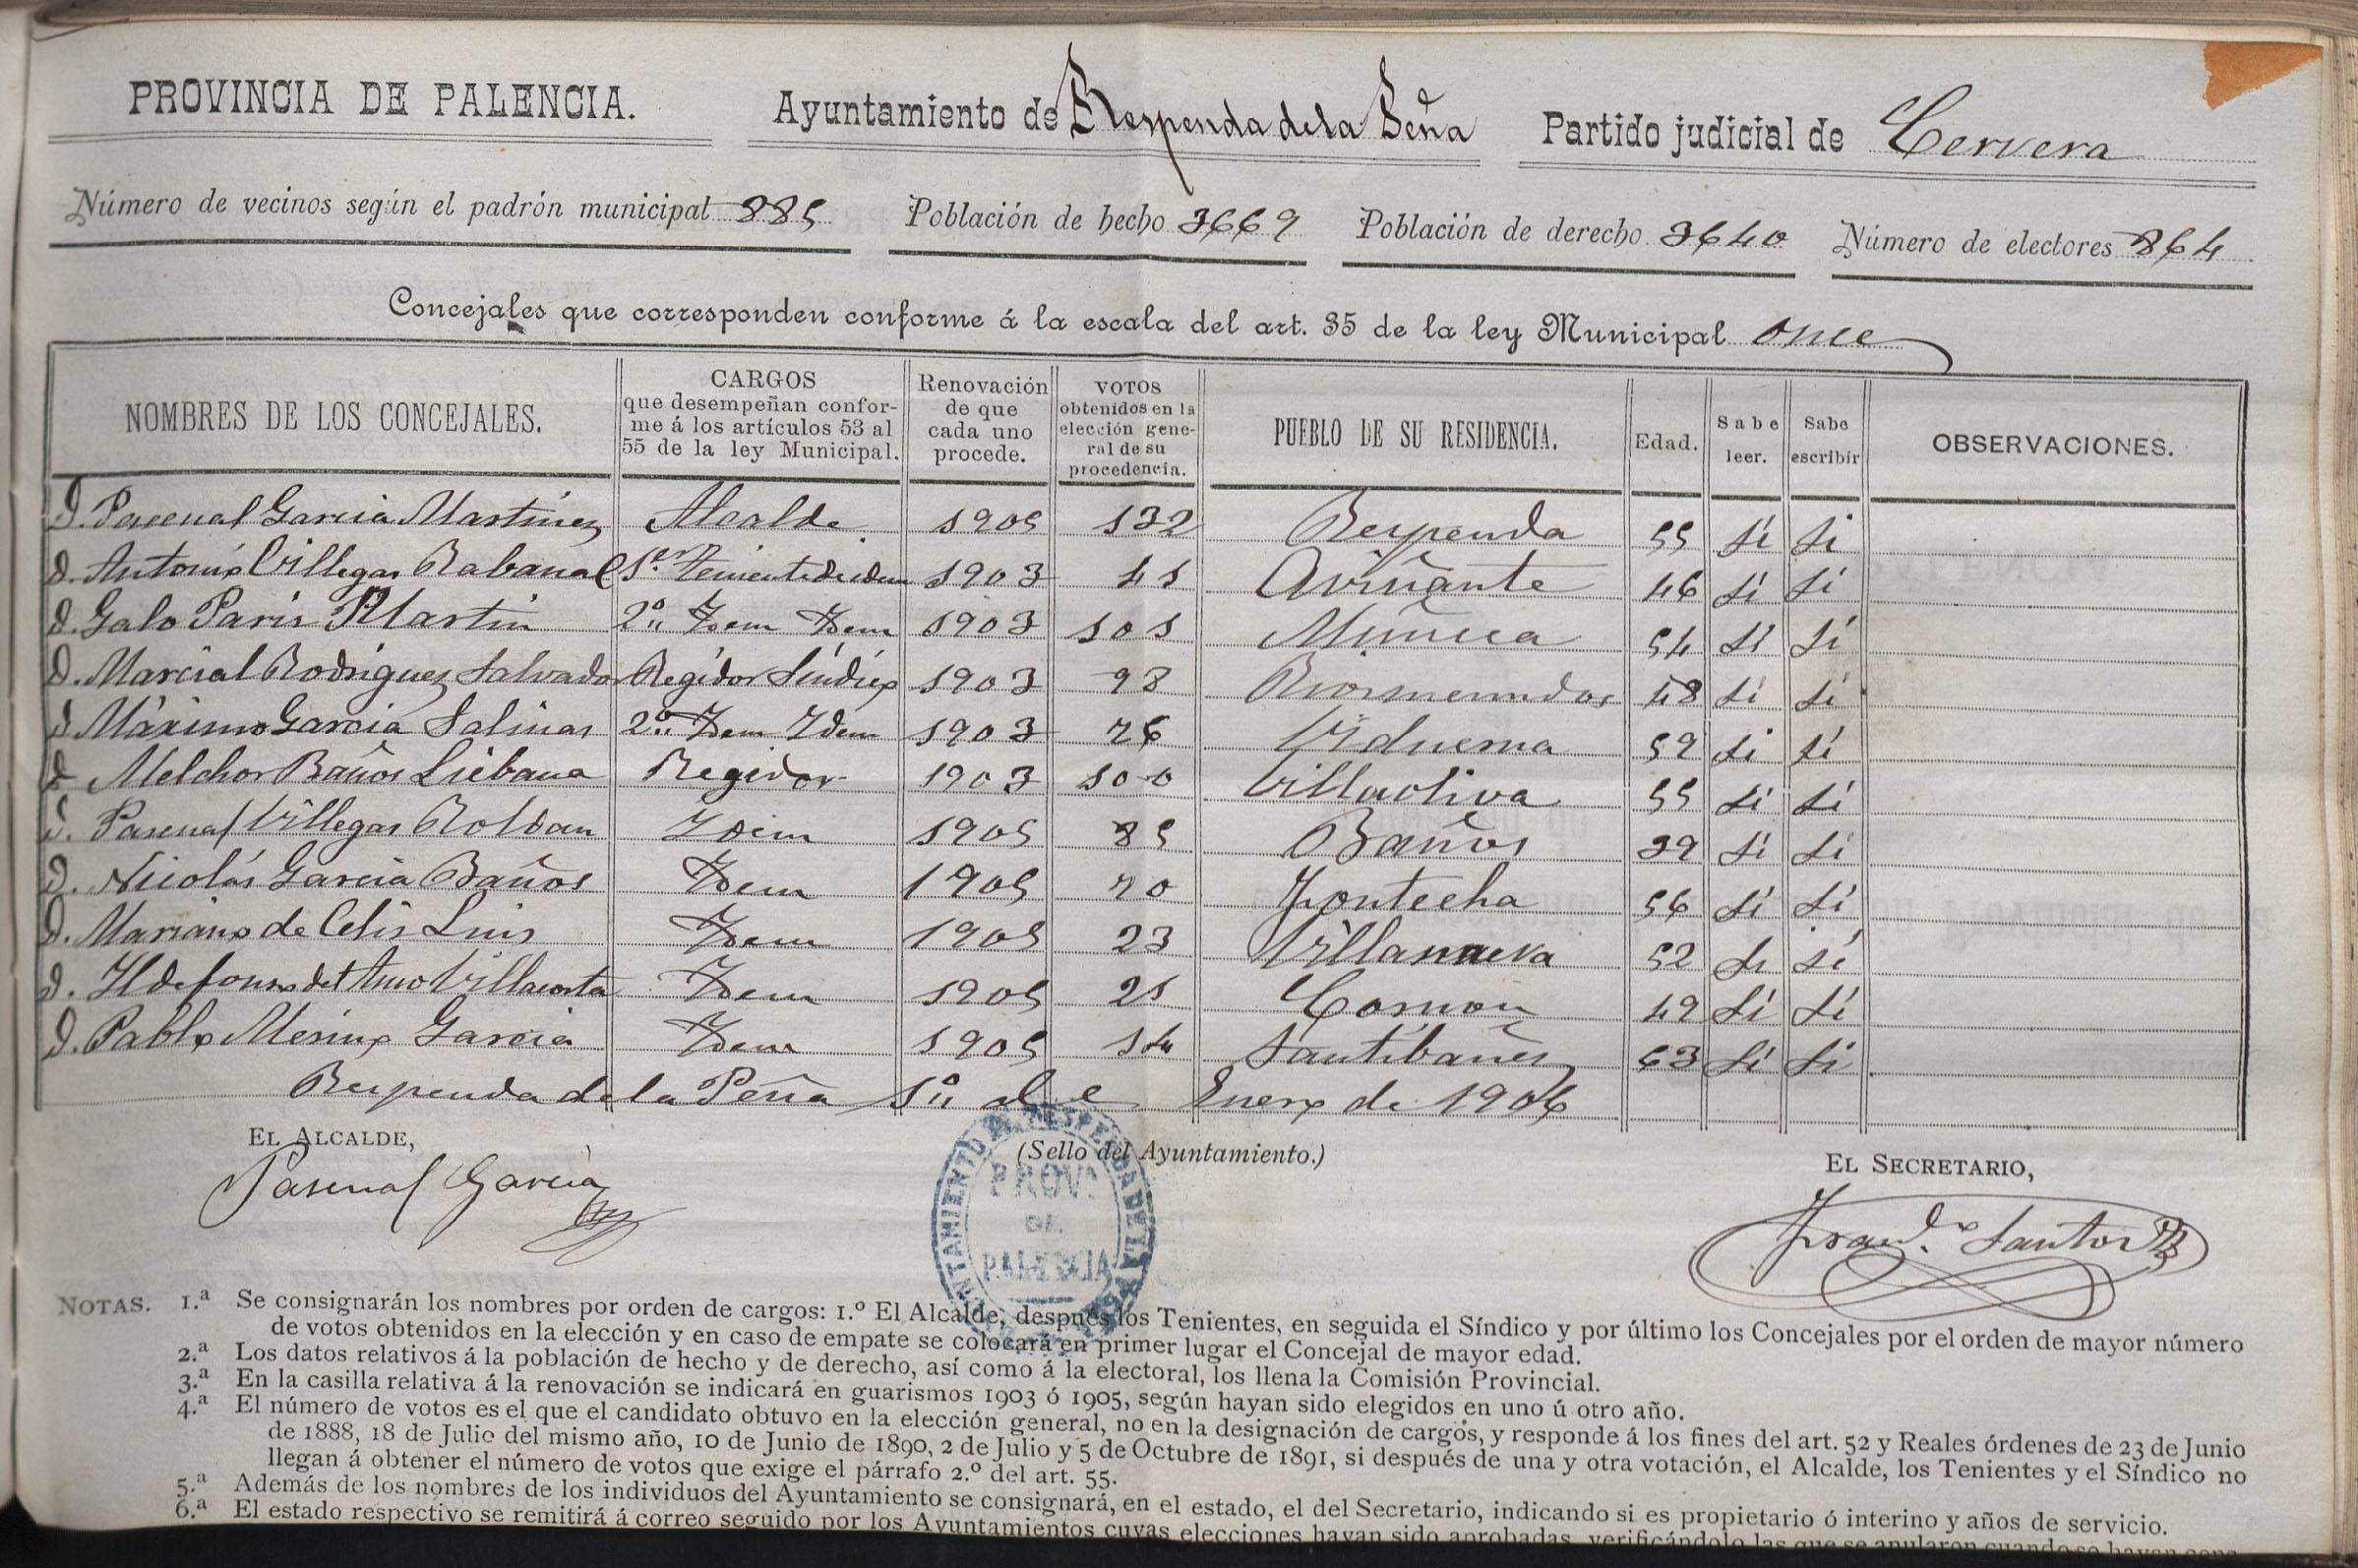 PROVINCIA DE PALENCIA. Ayuntamiento de Respenda de la Peña Partido judicial de Cervera
Número de vecinos según el padrón municipal 885 Población de hecho 3669 Población de derecho 3640 Número de electores 864
Concejales que corresponden conforme á la escala del art. 35 de la ley Municipal once
NOMBRES DE LOS CONCEJALES. CARGOS que desempeñan conforme á los artículos 53 al 55 de la ley Municipal. Renovación de que cada uno procede. VOTOS obtenidos en la elección general de su procedencia. PUEBLO DE SU RESIDENCIA. Edad. Sabe leer. Sabe escribir OBSERVACIONES.
D. Pascual García Martínez Alcalde 1905 132 Respenda 55 Si Si
D. Antonio Villegas Rabanal 1er Teniente de idem 1903 41 Aviñante 46 Si Si
D. Galo Paris Martin 2º Idem Idem 1903 101 Muñeca 54 Si Si
D. Marcial Rodríguez Salvador Regidor Síndico 1903 98 Riosmenudos 48 Si Si
D. Máximo García Salinas 2º Idem Idem 1903 76 Viduerna 59 Si Si
D. Melchor Baños Liébana Regidor 1903 100 Villaoliva 55 Si Si
D. Pascual Villegas Roldan Idem 1905 85 Baños 39 Si Si
D. Nicolás García Baños Idem 1905 70 Fontecha 56 Si Si
D. Mariano de Celis Luis Idem 1905 23 Villanueva 52 Si Si
D. Ildefonso del Amo Villacorta Idem 1905 21 Cornon 49 Si Si
D. Pablo Merino García Idem 1905 14 Santibañez 53 Si Si
Respenda de la Peña 1º de Enero de 1906
EL ALCALDE, (Sello del Ayuntamiento.) EL SECRETARIO,
Pascual García
AYUNTAMIENTO DE RESPENDA DE LA
PROVA
DE
PALENCIA
Santos
NOTAS. 1.ª Se consignarán los nombres por orden de cargos: 1.º El Alcalde, después los Tenientes, en seguida el Síndico y por último los Concejales por el orden de mayor número
de votos obtenidos en la elección y en caso de empate se colocará en primer lugar el Concejal de mayor edad.
2.ª Los datos relativos á la población de hecho y de derecho, así como á la electoral, los llena la Comisión Provincial.
3.ª En la casilla relativa á la renovación se indicará en guarismos 1903 ó 1905, según hayan sido elegidos en uno ú otro año.
4.ª El número de votos es el que el candidato obtuvo en la elección general, no en la designación de cargos, y responde á los fines del art. 52 y Reales órdenes de 23 de Junio
de 1888, 18 de Julio del mismo año, 10 de Junio de 1890, 2 de Julio y 5 de Octubre de 1891, si después de una y otra votación, el Alcalde, los Tenientes y el Síndico no
llegan á obtener el número de votos que exige el párrafo 2.º del art. 55.
5.ª Además de los nombres de los individuos del Ayuntamiento se consignará, en el estado, el del Secretario, indicando si es propietario ó interino y años de servicio.
6.ª El estado respectivo se remitirá á correo seguido por los Ayuntamientos cuyas elecciones hayan sido aprobadas, verificándolo las que se anularon cuando se hayan